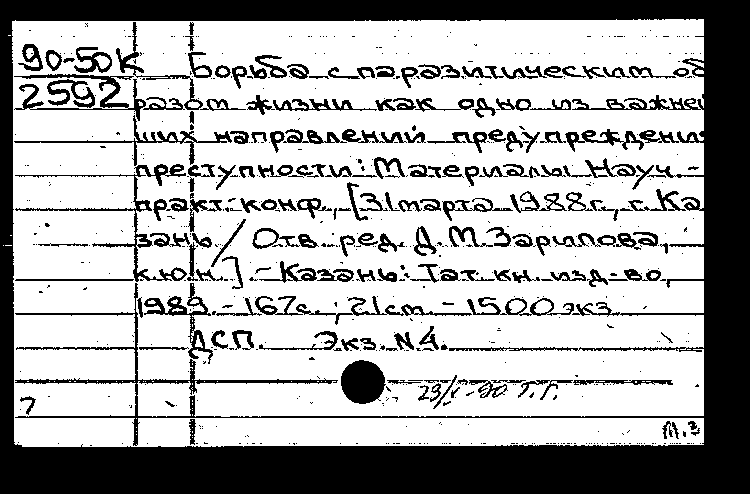 90-50К Борьба с паразитическим об
2592 разом жизни как одно из важней
ших направлений предупреждения
преступности: Материалы Науч.-
практ. конф., [31 марта 1988г., г. Ка
зань / Отв. ред. Д.М. Зарипова,
к.ю.н.]. - Казань: Тат. кн. изд-во,
1989. - 167с.; 21 см. - 1500 экз
ДСП. Экз. N 4.
23/X-90 Т.Г.
7
м.з